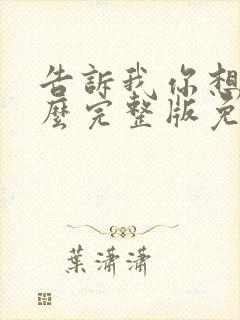 告訴我你想
麼完整版免
葉瀟瀟